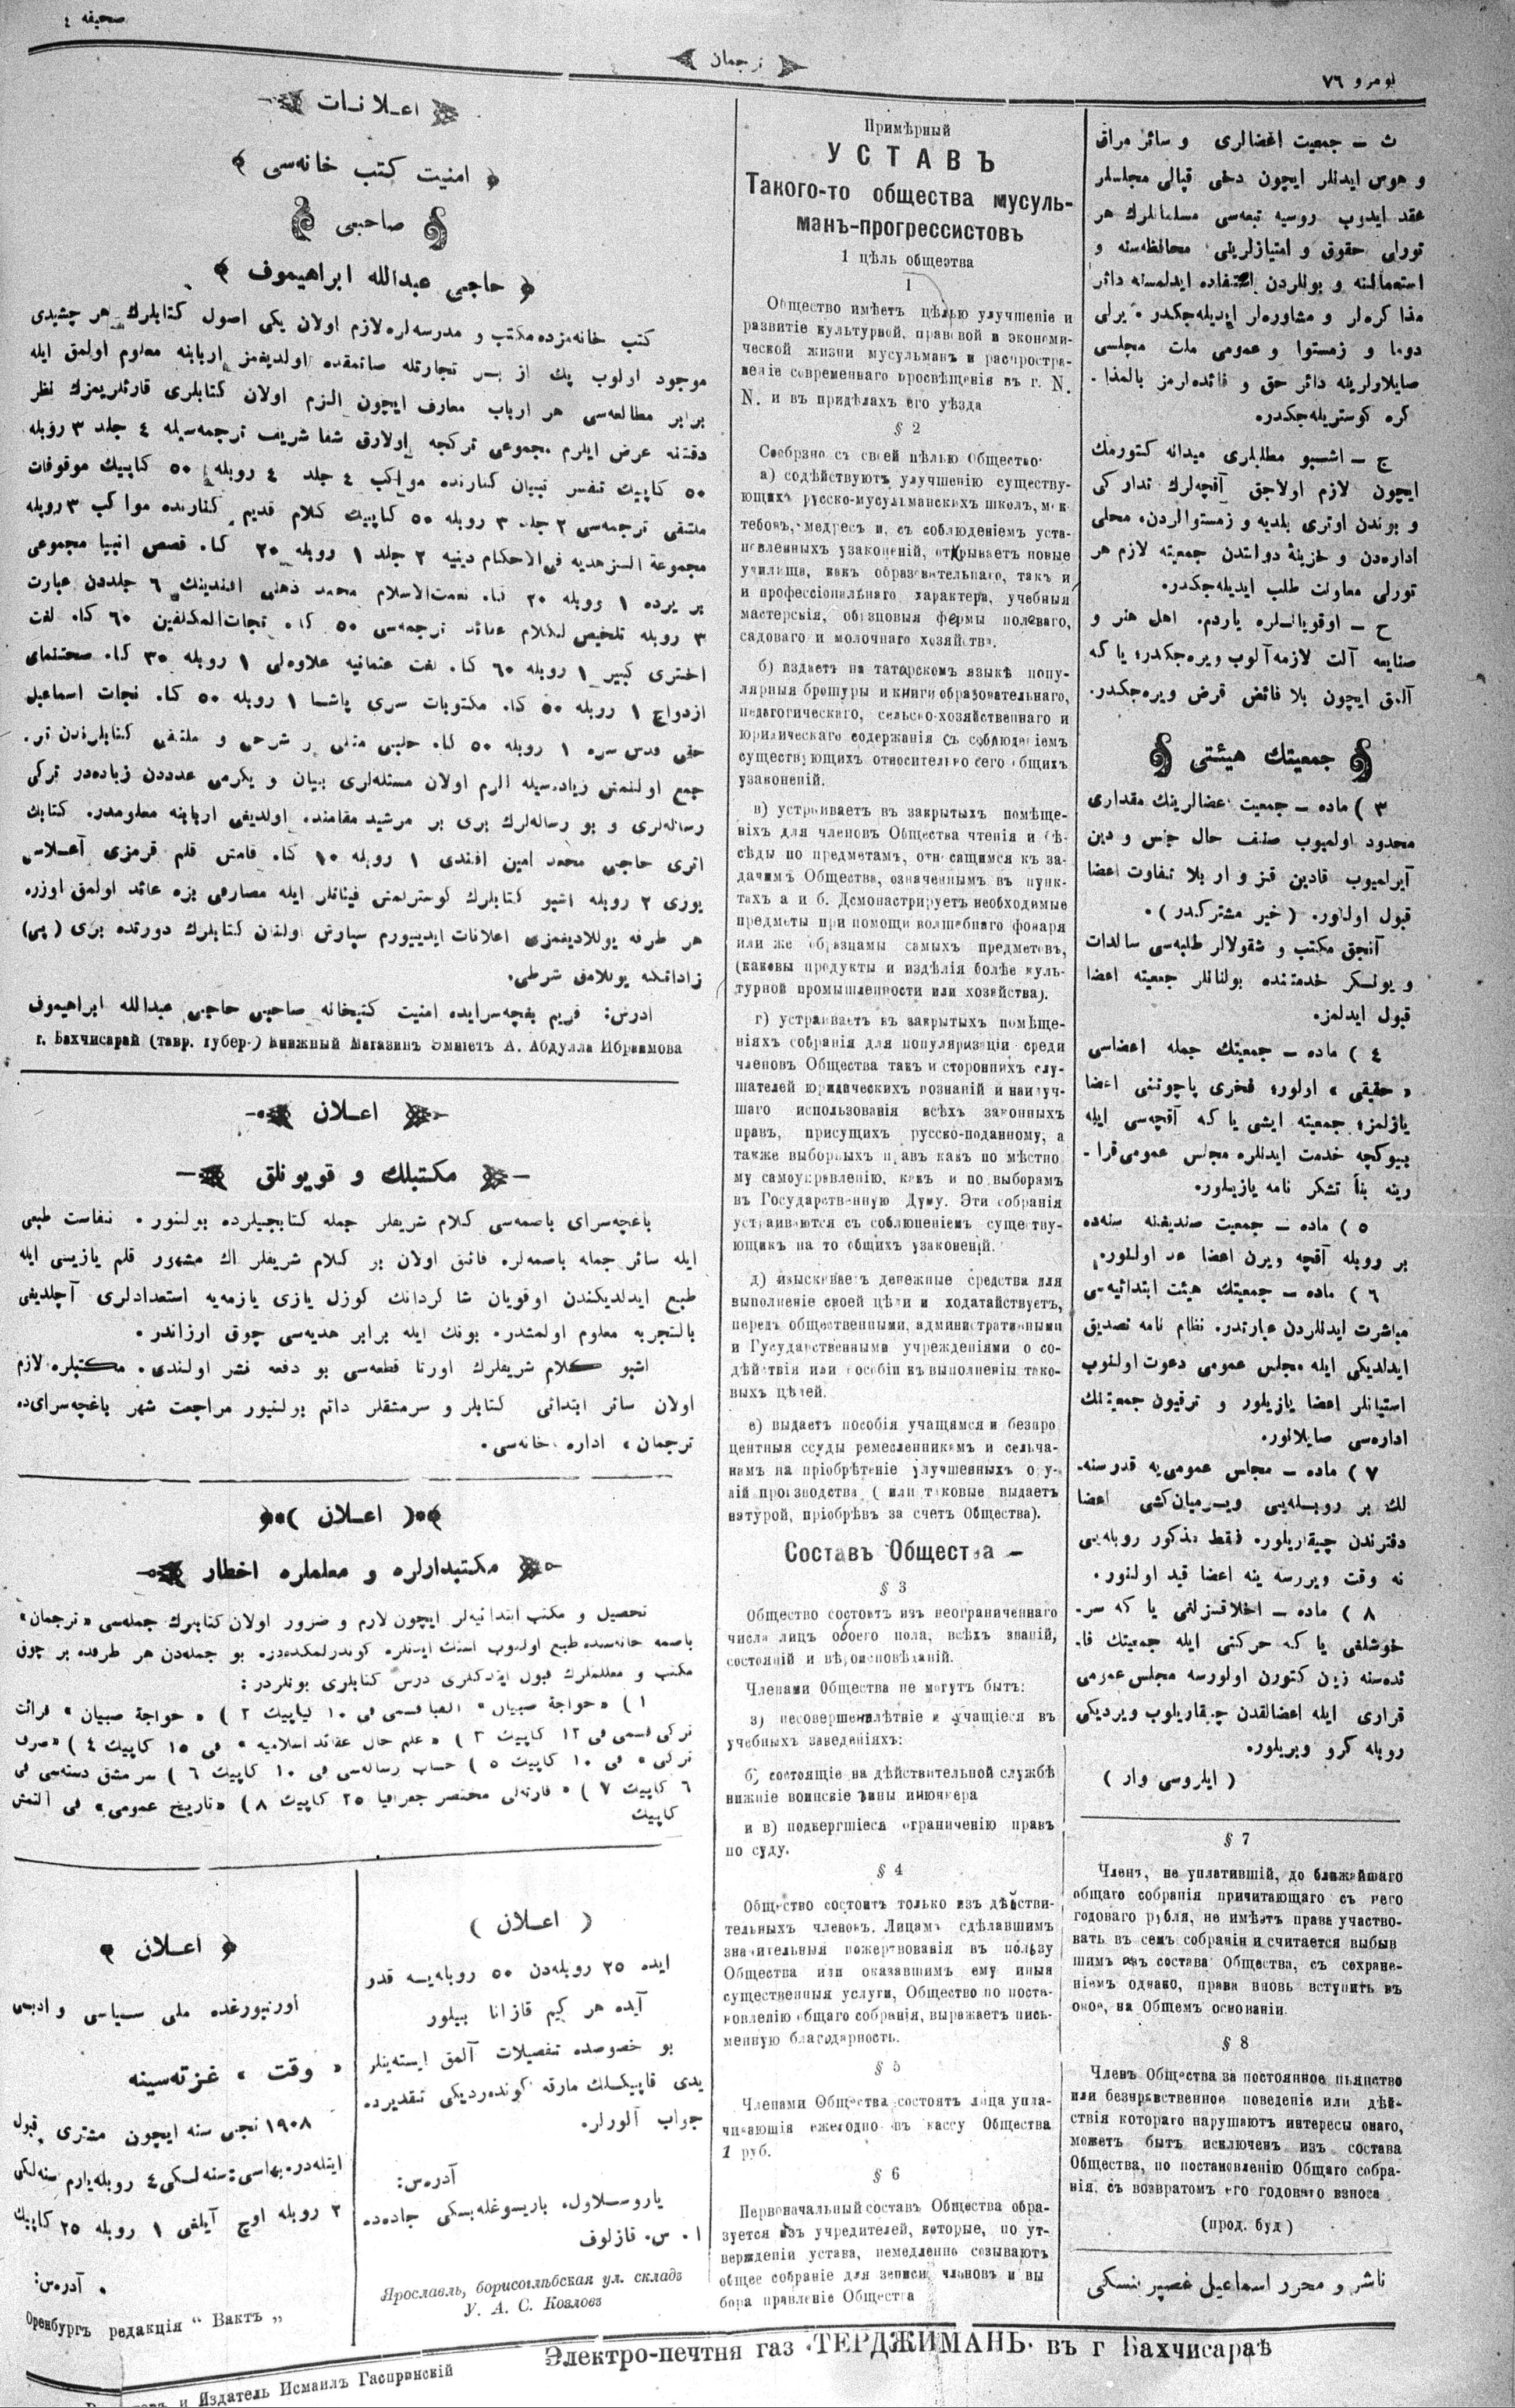 نومرو ٧٦
ترجمان
صحیفه ٤
ث — جمعیت اعضالری و سائر مراق
و هوس ایدنلر ایچون دخی قپالی مجلسلر
عقد ایدوب روسیه تبعه‌سی مسلمانلرك هر
تورلی حقوق و امتیازلرینی محافظه‌سنه و
استعمالنه و بوللردن استفاده ایدلمسنه دائر
مذاکره‌لر و مشاوره‌لر ایدیله‌جکدر. یرلی
دوما و زمستوا و عمومی ملت مجلسی
صایلاولرینه دائر حق و فائده‌لرمز بالمذا-
کره کوستریله‌جکدر.
ج — اشبو مطلبلری میدانه کتورمك
ایچون لازم اولاجق آقچه‌لرك تدارکی
و بوندن اوتری بلدیه و زمستوالردن، محلی
اداره‌دن و خزینهٔ دولتدن جمعیته لازم هر
تورلی معاونت طلب ایدیله‌جکدر.
ح — اوقویانلره یاردم. اهل هنر و
صنایعه آلت لازمه آلوب ویره‌جکدر؛ یا که
آلمق ایچون بلا فائض قرض ویره‌جکدر.
جمعیتك هیئتی
٣ ) ماده — جمعیت اعضالرینك مقداری
محدود اولمیوب صنف حال جنس و دین
آیرلمیوب قادین قز و ار بلا تفاوت اعضا
قبول اولنور. (خیر مشترکدر).
آنجق مکتب و شقولالر طلبه‌سی سالدات
و یونکر خدمتنده بولنانلر جمعیته اعضا
قبول ایدلمز.
٤ ) ماده — جمعیتك جمله اعضاسی
« حقیقی » اولور؛ فخری پاچوتنی اعضا
یازلمز؛ جمعیته ایشی یا که آقچه‌سی ایله
بیوکچه خدمت ایدنلره مجلس عمومی قرا-
رینه بناً تشکر نامه یازیلور.
٥ ) ماده — جمعیت صندیغنه سنه‌ده
بر روبله آقچه ویرن اعضا عد اولنور.
٦ ) ماده — جمعیتك هیئت ابتدائیه‌سی
مباشرت ایدنلردن عبارتدر. نظام نامه تصدیق
ایدلدیکی ایله مجلس عمومی دعوت اولنوب
استیانلر اعضا یازیلور و ترقیون جمعیتنك
اداره‌سی صایلانور.
٧ ) ماده — مجلس عمومی‌یه قدر سنه-
لك بر روبله‌یی ویرمیان کشی اعضا
دفترندن چیقاریلور. فقط مذکور روبله‌یی
نه وقت ویررسه ینه اعضا قید اولنور.
٨ ) ماده — اخلاقسزلغی یا که سر-
خوشلغی یا که حرکتی ایله جمعیتك فا-
ئده‌سنه زیان کتورن اولورسه مجلس عمومی
قراری ایله اعضالقدن چیقاریلوب ویردیکی
روبله کرو ویریلور.
( ایلروسی وار )
§ 7
Членъ, не уплатившій, до ближайшаго
общаго собранія причитающаго съ него
годоваго рубля, не имѣтъ права участво-
вать въ семъ собраніи и считается выбыв
шимъ изъ состава Общества, съ сохране-
ніемъ однако, права вновь вступить въ
оное, на Общемъ основаніи.
§ 8
Членъ Общества за постоянное пьянство
или безнравственное поведеніе или дѣй-
ствія котораго нарушаютъ интересы онаго,
можетъ быть исключенъ изъ состава
Общества, по постановленію Общаго собра-
нія, съ возвратомъ его годоваго взноса
(прод. буд)
ناشر و محرر اسماعیل غصپرنسکی
Примѣрный
УСТАВЪ
Такого-то общества мусуль-
манъ-прогрессистовъ
1 цѣль общества
1
Общество имѣетъ цѣлью улучшеніе и
развитіе культурной, правовой и экономи-
ческой жизни мусульманъ и распростра-
неніе современнаго просвѣщенія въ г. N.
N. и въ придѣлахъ его уѣзда
§ 2
Сообрзно съ своей цѣлью Общество
а) содѣйствуютъ улучшенію существу-
ющихъ русско-мусульманскихъ школъ, мек
тебовъ, медресъ и, съ соблюденіемъ уста-
новленныхъ узаконеній, открываетъ новые
училища, какъ образовательнаго, такъ и
и профессіональнаго характера, учебныя
мастерскія, обазцовыя фермы полеваго,
садоваго и молочнаго хозяйства.
б) издаетъ на татарскомъ языкѣ попу-
лярныя брошуры и книги образовательнаго,
педагогическаго, сельско-хозяйственнаго и
юридическаго содержанія съ соблюденіемъ
существующихъ относительно сего общихъ
узаконеній.
в) устраиваетъ въ закрытыхъ помѣще-
ніхъ для членовъ Общества чтенія и бѣ-
сѣды по предметамъ, относящимся къ за-
дачимъ Общества, означеннымъ въ пунк-
тахъ а и б. Демонастрируетъ необходимые
предметы при помощи волшебнаго фонаря
или же образцамы самыхъ предметовъ,
(каковы продукты и издѣлія болѣе куль-
турной промышленности или хозяйства).
г) устраиваетъ въ закрытыхъ помѣще-
ніяхъ собранія для популяризаціи среди
членовъ Общества такъ и стороннихъ слу-
шателей юридическихъ познаній и наилуч-
шаго использованія всѣхъ законныхъ
правъ, присущихъ русско-поданному, а
также выборныхъ правъ какъ по мѣстно
му самоуправленію, какъ и по выборамъ
въ Государственную Думу. Эти собранія
устраиваются съ соблюценіемъ существу-
ющикъ на то общихъ узаконеній.
д) изыскиваетъ денежные средства для
выполненіе своей цѣли и ходатайствуетъ,
передъ общественными, административными
и Государственными учрежденіями о со-
дѣйствія или пособіи къ выполненіы тако-
выхъ цѣлей.
е) выдаетъ пособія учащямся и безпро
центныя ссуды ремесленникамъ и сельча-
намъ на пріобрѣтеніе улучшенныхъ ору-
дій производства (или таковые выдаетъ
натурой, пріобрѣвъ за счетъ Общества).
Составъ Общества —
§ 3
Общество состоитъ изъ неограниченнаго
числа лицъ обоего пола, всѣхъ званій,
состояній и вѣроисповѣданій.
Членами Общества не могутъ быть:
а) несовершенлѣтніе и учащіеся въ
учебныхъ заведеніяхъ:
б) состоящіе на дѣйствительной службѣ
нижніе воинскіе чины июнкера
и в) подвергшіеся ограниченію правъ
по суду.
§ 4
Общество состоитъ только изъ дѣйстви-
тельныхъ членовъ. Лицамъ сдѣлавшимъ
значительныя пожертвованія въ пользу
Общества или оказавшимъ ему иныя
существенныя услуги, Общество по поста-
новленію общаго собранія, выражаетъ пись-
менную благодарность.
§ 5
Членами Общества состоятъ лица упла-
чивающія ежегодно въ кассу Общества
1 руб.
§ 6
Первоначальный составъ Общества обра-
зуется изъ учредителей, которые, по ут-
вержденіи устава, немедленно созываютъ
общее собраніе для записи членовъ и вы
бора правленіе Общества
اعلانات
امنیت کتب خانه‌سی
صاحبی
حاجی عبدالله ابراهیموف
کتب خانه‌مزده مکتب و مدرسه‌لره لازم اولان یکی اصول کتابلرك هر چشیدی
موجود اولوب پك از بر تجارتله صاتمقده اولدیغمز اربابنه معلوم اولمق ایله
برابر مطالعه‌سی هر ارباب معارف ایچون الزم اولان کتابلری قارئلریمزك نظر
دقتنه عرض ایلرم. مجموعی ترکجه اولارق شفا شریف ترجمه‌سیله ٤ جلد ٣ روبله
٥٠ کاپیك تفسر تبیان کنارنده مواکب ٤ جلد ٤ روبله ٥٠ کاپیك موقوفات
ملتقی ترجمه‌سی ٢ جلد ٣ روبله ٥٠ کاپیك کلام قدیم کنارنده مواکب ٣ روبله
مجموعة الزهدیه فی الاحکام دینیه ٢ جلد ١ روبله ٢٠ کا. قصص انبیا مجموعی
بر یرده ١ روبله ٢٠ کا. نعمت‌الاسلام محمد ذهنی افندینك ٦ جلددن عبارت
٣ روبله تلخیص لکلام عقائد ترجمه‌سی ٥٠ کا. نجات‌المکلفین ٦٠ کا. لغت
اختری کبیر ١ روبله ٦٠ کا. لغت عثمانیه علاوه‌لی ١ روبله ٣٠ کا. صحتنمای
ازدواج ١ روبله ٥٠ کا. مکتوبات سری پاشا ١ روبله ٥٠ کا. نجات اسماعیل
حقی قدس سره ١ روبله ٥٠ کا. حلبی متنی و شرحی و ملتقی کتابلرندن تر.
جمع اولنمش زیاده‌سیله الزم اولان مسئله‌لری بیان و یکرمی عدددن زیاده‌در ترکی
رساله‌لری و بو رساله‌لرك بری بر مرشید مقامنده اولدیغی اربابنه معلومدر. کتابك
اثری حاجی محمد امین افندی ١ روبله ١٠ کا. قامش قلم قرمزی آعلاسی
یوزی ٢ روبله اشبو کتابلرك کوسترلمش فیئاتلر ایله مصارفی بزه عائد اولمق اوزره
هر طرفه یوللادیغمزی اعلانات ایدییورم سپارش اولنان کتابلرك دورتده بری (پی)
زاداتکنه یوللامق شرطی.
ادرس: قریم بغچه‌سرایده امنیت کتبخانه صاحبی حاجی عبدالله ابراهیموف
г. Бахчисарай (тавр. губер.) Книжный Магазинъ Эминетъ А. Абдулла Ибраимова
اعلان
مکتبلك و قویونلق
باغچه‌سرای باصمه‌سی کلام شریفلر جمله کتابجیلرده بولنور. نفاست طبعی
ایله سائر جمله باصمه‌لره فائق اولان بر کلام شریفلر اك مشهور قلم یازیسی ایله
طبع ایدلدیکندن اوقویان شاکردانك کوزل یازی یازمه‌یه استعدادلری آچلدیغی
بالتجربه معلوم اولمشدر. بونك ایله برابر هدیه‌سی چوق ارزاندر.
اشبو کلام شریفلرك اورتا قطعه‌سی بو دفعه نشر اولندی. مکتبلره لازم
اولان سائر ابتدائی کتابلر و سرمشقلر دائم بولنیور مراجعت شهر باغچه‌سرای‌ده
ترجمان، اداره خانه‌سی.
اعلان
مکتبدارلره و معلملره اخطار
تحصیل و مکتب ابتدائیه‌لر ایچون لازم و ضرور اولان کتابلرك جمله‌سی «ترجمان»
باصمه خانه‌سنده طبع اولنوب استك ایدنلره کوندرلمکده‌در. بو جمله‌دن هر طرفده بر چوق
مکتب و معلملرك قبول ایتدکلری درس کتابلری بونلردر:
١ ) «خواجهٔ صبیان» الفبا قسمی فی ١٠ کاپیك ٢ ) «خواجهٔ صبیان» قرائت
ترکی قسمی فی ١٢ کاپیك ٣ ) «علم حال عقائد اسلامیه» فی ١٥ کاپیك ٤ ) «صرف
ترکی» فی ١٠ کاپیك ٥ ) حساب رساله‌سی فی ١٠ کاپیك ٦ ) سرمشق دسته‌سی فی
٦ کاپیك ٧ ) «قارته‌لی مختصر جغرافیا ٢٥ کاپیك ٨ ) «تاریخ عمومی» فی آلتمش
کاپیك
( اعلان )
ایده ٢٥ روبله‌دن ٥٠ روبله‌یه قدر
آیده هر کیم قازانا بیلور
بو خصوصده تفصیلات آلمق ایسته‌ینلر
یدی قاپیکلك مارقه کونده‌ردیکی تقدیرده
جواب آلورلر.
آدرس:
یاروسلاول، باریسوغلبسکی جاده‌ده
ا. س. قازلوف
Ярославль, борисоглѣбская ул. складъ
У. А. С. Козловъ
اعلان
اورنبورغده ملی سیاسی و ادبی
« وقت » غزته‌سینه
١٩٠٨ نجی سنه ایچون مشتری قبول
ایتله‌در. بهاسی: سنه‌لکی ٤ روبله یارم سنه‌لکی
٢ روبله اوچ آیلغی ١ روبله ٢٥ کاپیك
آدرس:
Оренбургъ редакція “ Вактъ „
Электро-печтня газ „ТЕРДЖИМАНЬ“ въ г Бахчисараѣ
и Издатель Исмаилъ Гаспринскій